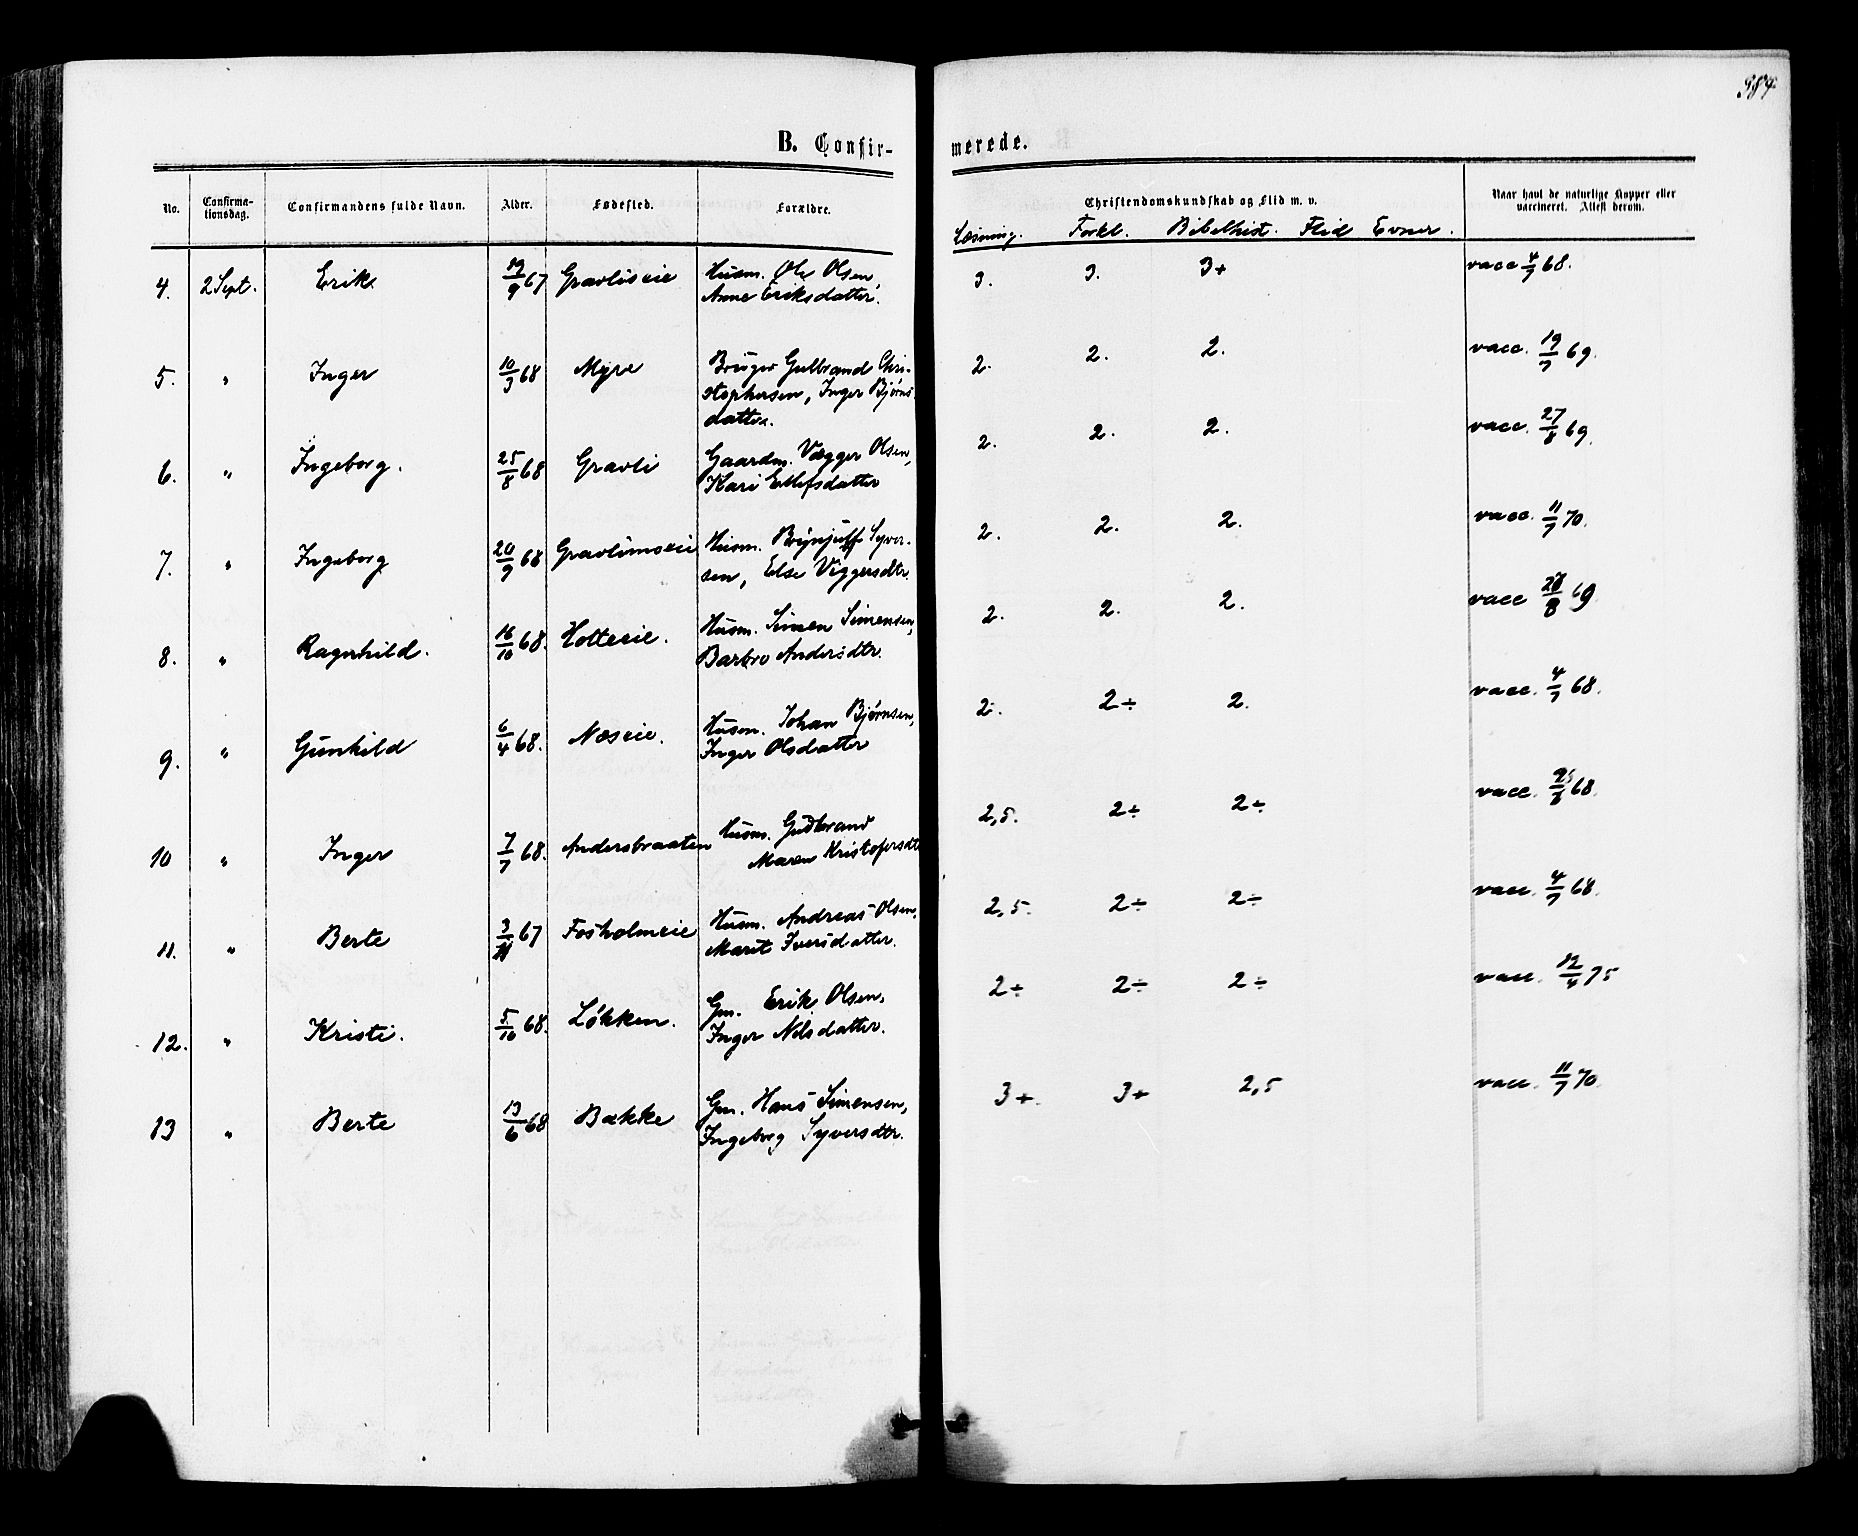 384
B. Confirmerede.
No. Confirmationsdag. Confirmandens fulde Navn. Alder. Fødested. Forældre. Christendomskundskab og Flid m. v. Naar havt de naturlige Kopper eller vaccineret. Attest derom.
Læsning. Forkl. Bibelhist. Flid Evner.
4. 2 Sept. Erik 19/9 67 Gravliseie Husm. Ole Olsen, 3. 3. 3+ vacc 4/7 68.
Anne Eriksdatter.
5. " Inger 10/3 68 Myre Bruger Gulbrand Chri- 2. 2. 2. vacc. 19/7 69.
stophersen, Inger Bjørns
datter.
6. " Ingeborg. 25/8 68 Gravli Gaardm. Vegger Olsen, 2. 2. 2. vacc. 27/8 69.
Kari Ellefsdatter
7. " Ingeborg 20/9 68 Gravlimseie Husm. Brynjulf Syver- 2. 2. 2. vacc. 11/7 70.
sen, Else Viggersdtr.
8. " Ragnhild. 16/10 68. Holteeie. Husm. Simen Simensen, 2. 2. 2. vacc 28/8 69
Barbro Andersdtr.
9. " Gunhild 6/4 68. Næseie. Husm. Johan Bjørnsen, 2. 2÷ 2. vacc. 4/7 68.
Inger Olsdatter
10 " Inger 7/7 68. Andersbraaten Husm. Gudbrand 2,5. 2÷ 2÷ vacc. 68.
Maren Kristofersdt
11. " Berte 3/11 67 Fosholmeie Husm. Andreas Olsen, 2,5. 2÷ 2÷ vacc. 4/7 68.
Marit Iversdatter.
12. " Kristi. 5/10 68. Løkken. Gm. Erik Olsen, 2÷ 2÷ 2÷ vacc. 12/4 75
Inger Nilsdatter.
13 " Berte 13/6 68 Bække Gm. Hans Simensen, 3+. 3+ 2,5 vacc. 11/7 70.
Ingeborg Syversdtr.